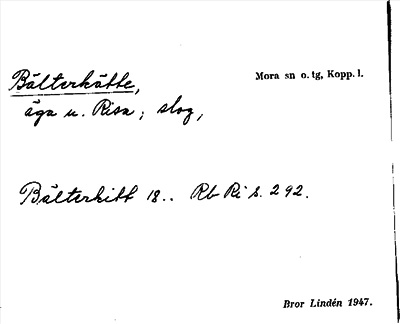 Bälterkätte,
Mora sn o. tg, Kopp. l.
äga u. Risa; slog,
Bälterkitt 18.. Rb Ri s. 292.
Bror Lindén 1947.